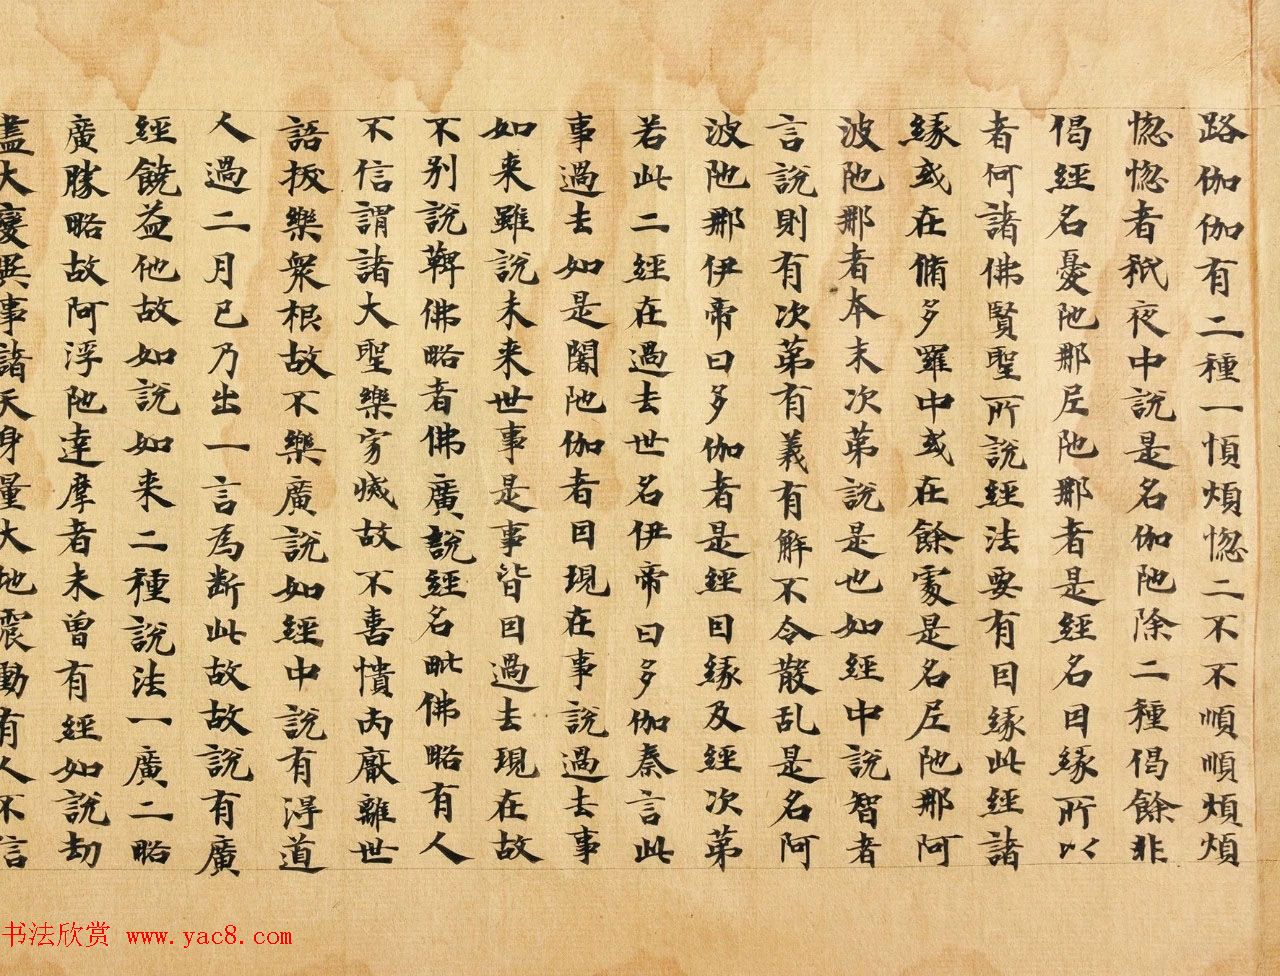 路伽伽有二種一順煩惱二不不順順煩煩
惱惱者祇夜中說是名伽陁除二種偈餘非
偈經名憂陁那尼陁那者是經名因緣所以
者何諸佛賢聖所說經法要有因緣此經諸
緣或在脩多羅中或在餘處是名尼陁那阿
波陁那者本末次第說是也如經中說智者
言說則有次第有義有解不令散乱是名阿
波陁那伊帝曰多伽者是經因緣及經次第
若此二經在過去世名伊帝曰多伽秦言此
事過去如是闍陁伽者因現在事說過去事
如来雖說未来世事是事皆因過去現在故
不别說鞞佛略者佛廣說經名毗佛略有人
不信謂諸大聖樂滅故不喜憒丙厭離世
語樂衆根故不樂廣說如經中說有得道
人過二月已乃出一言為断此故故說有廣
經饒益他故如說如来二種說法一廣二略
廣勝略故阿浮陁達摩者未曾有經如說劫
盡大變異事諸天身量大地震動有人不信
书法欣赏 www.yac8.com